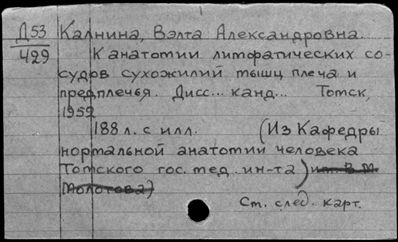 Д53 Калнина, Вэлта Александровна.
429 К анатомии лимфатических со-
судов сухожилий мышц плеча и
предплечья. Дисс... канд... Томск,
1952
188 л. с илл. (Из Кафедры
нормальной анатомии человека
Томского гос. мед. ин-та) им. В.М.
Молотова)
Ст. след. карт.